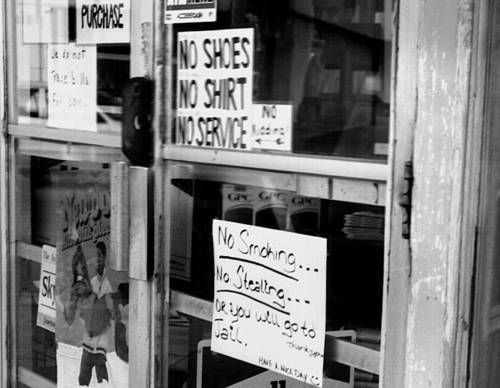 PURCHASE
We do not
Trade bills
For coins
NO SHOES
NO SHIRT
NO SERVICE
NO
Kidding
GPC GPC GPC
No Smoking...
No Stealing...
OR you will go to
Jail.
Thank you
HAVE A NICE DAY
Sky